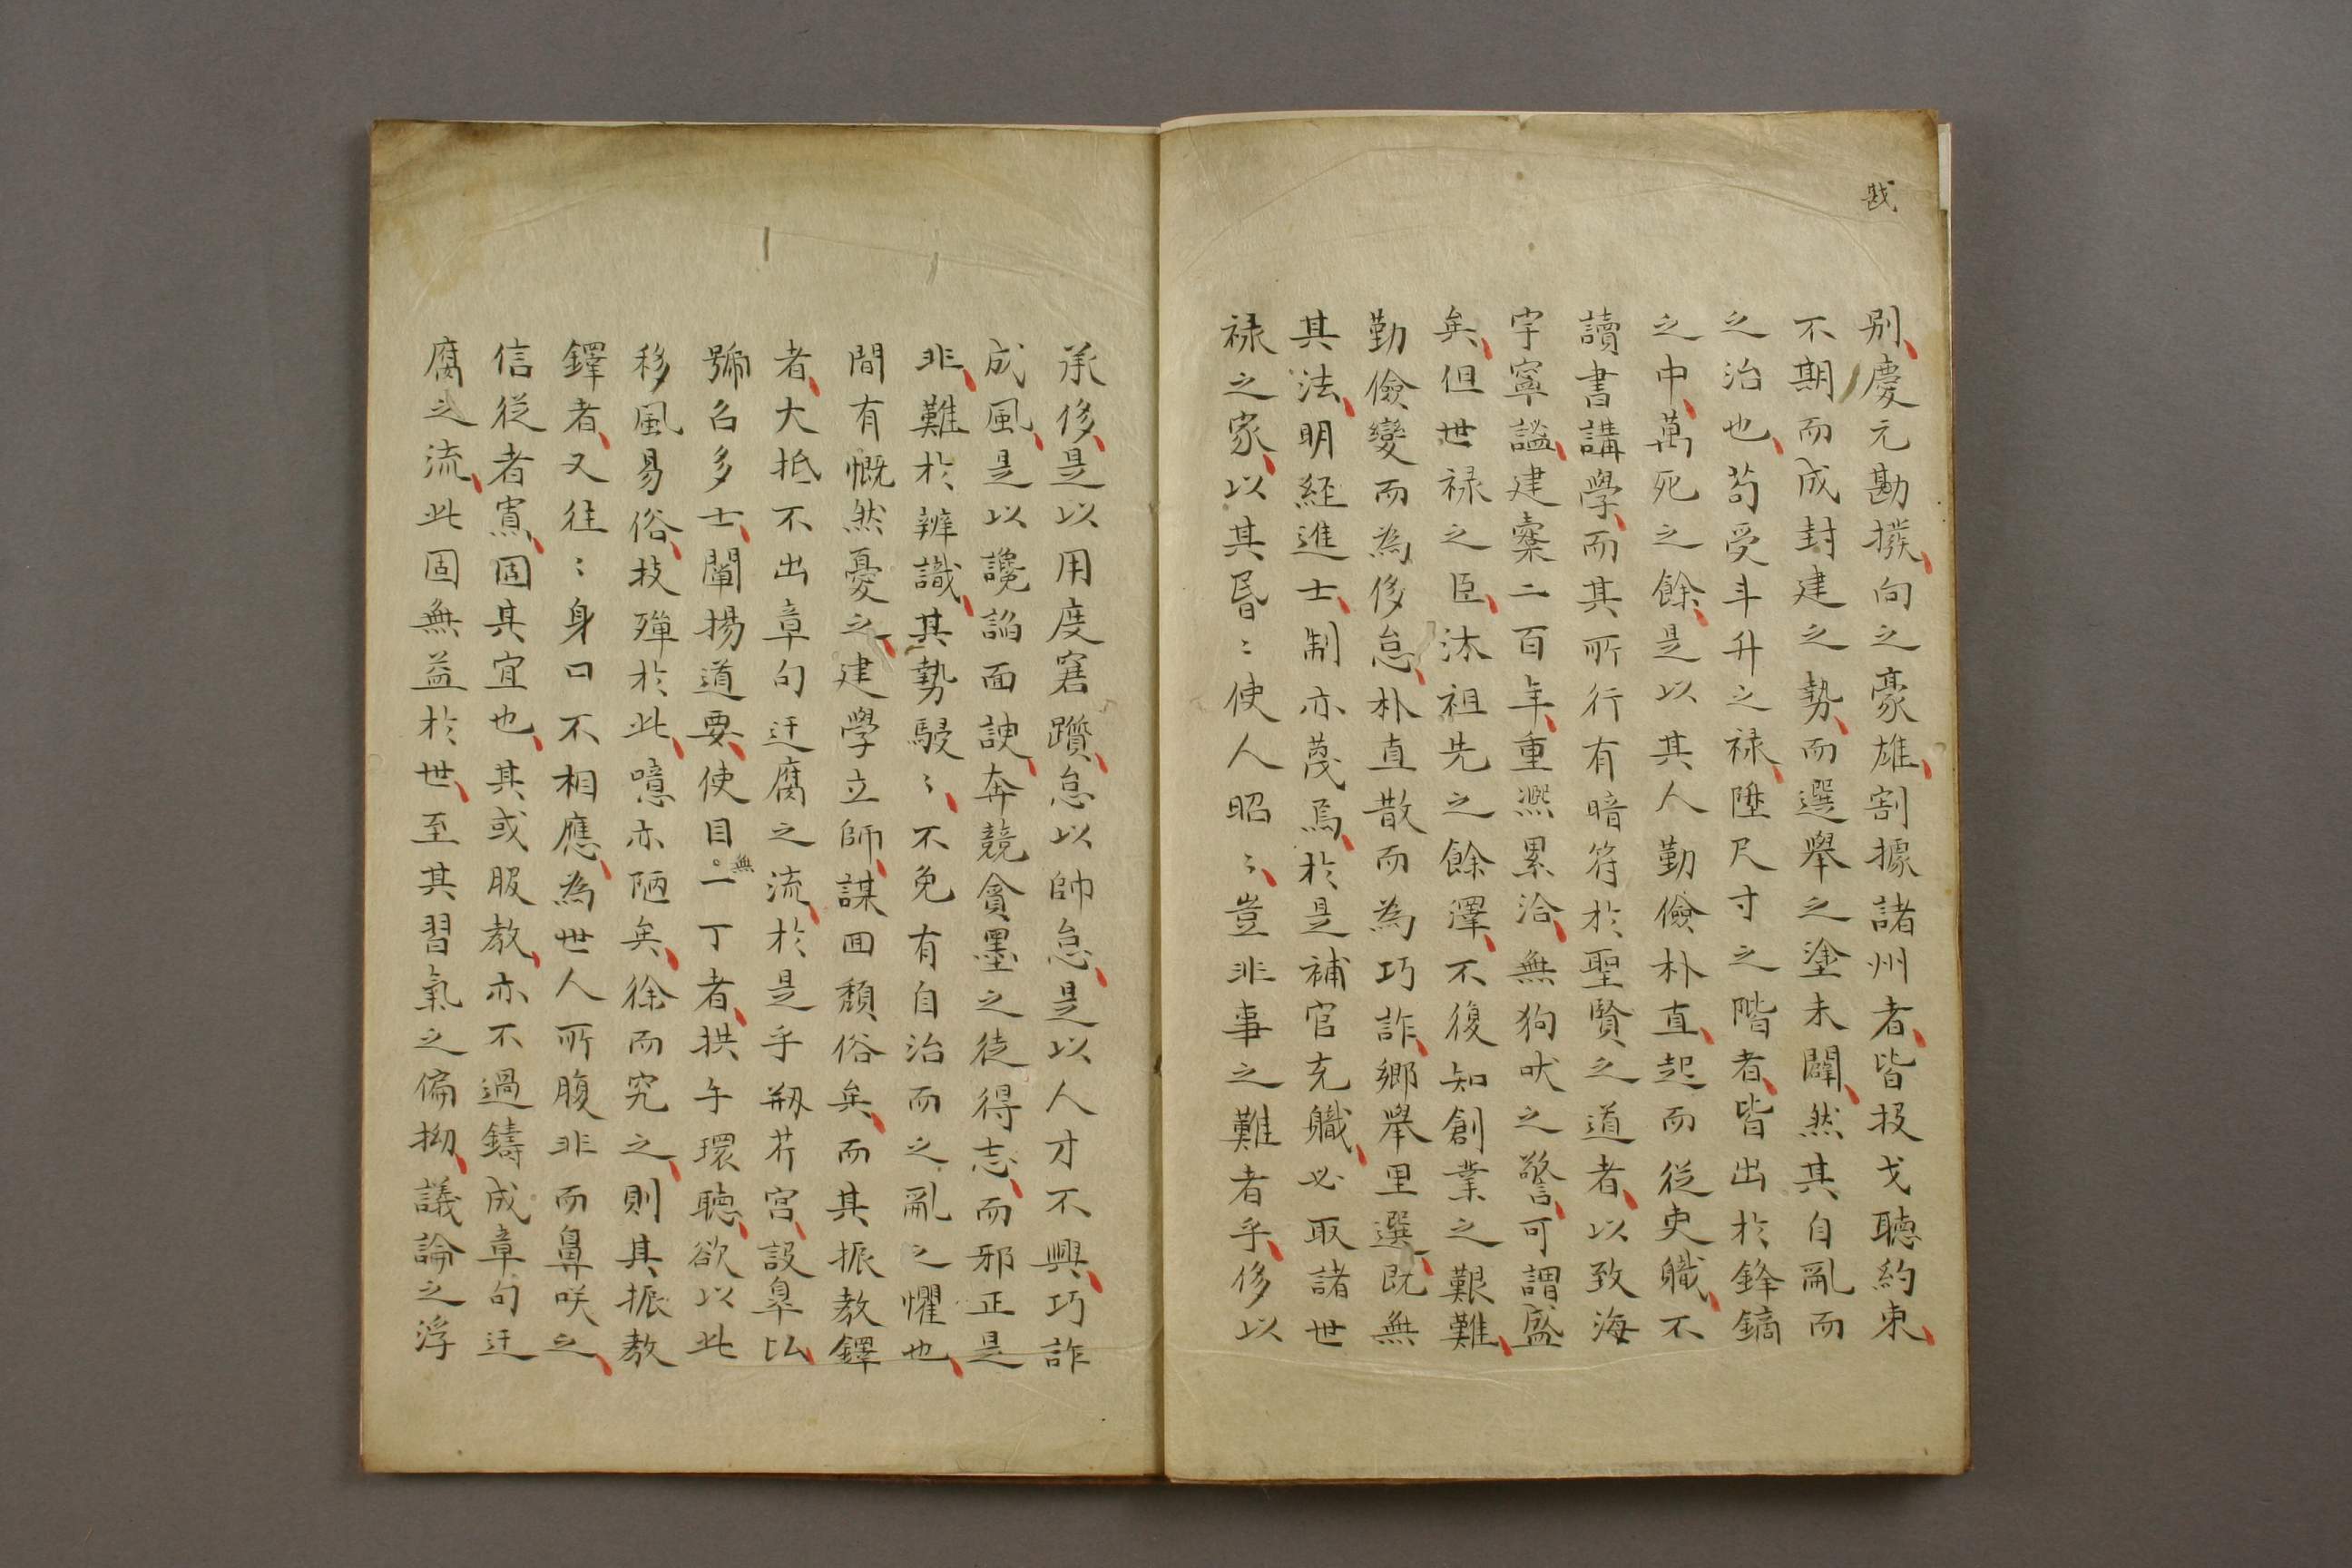 戡
别慶元勘撥向之豪雄割據諸州者皆投戈聴約束
不期而成封建之勢而選舉之塗未闢然其自亂而
之治也苟受斗升之禄陞尺寸之階者皆出於鋒鏑
之中萬死之餘是以其人勤儉朴直起而從吏職不
讀書講學而其所行有暗符於聖賢之道者以致海
宇寧謐建櫜二百年重凞累洽無狗吠之警可謂盛
矣但世禄之臣沐祖先之餘澤不復知創業之艱難
勤儉變而為侈怠朴直散而為巧詐鄉舉里選既無
其法明經進士制亦蔑焉於是補官充職必取諸世
禄之家以其昬〻使人昭〻豈非事之難者乎侈以
承侈是以用度窘躓怠以帥怠是以人才不興巧詐
成風是以讒諂面諛奔競貪墨之徒得志而邪正是
非難於辨識其勢駸〻不免有自治而之亂之懼也
間有慨然憂之建學立師謀囬頽俗矣而其振教鐸
者大抵不出章句迂腐之流於是乎剏芹宮設臯比
號召多士闡揚道要使目無一丁者拱手環聴欲以此
移風易俗技殫於此噫亦陋矣徐而究之則其振教
鐸者又往〻身口不相應為世人所腹非而鼻咲之
信從者寡固其宜也其或服教亦不過鑄成章句迂
腐之流此固無益於世至其習氣之偏拗議論之浮